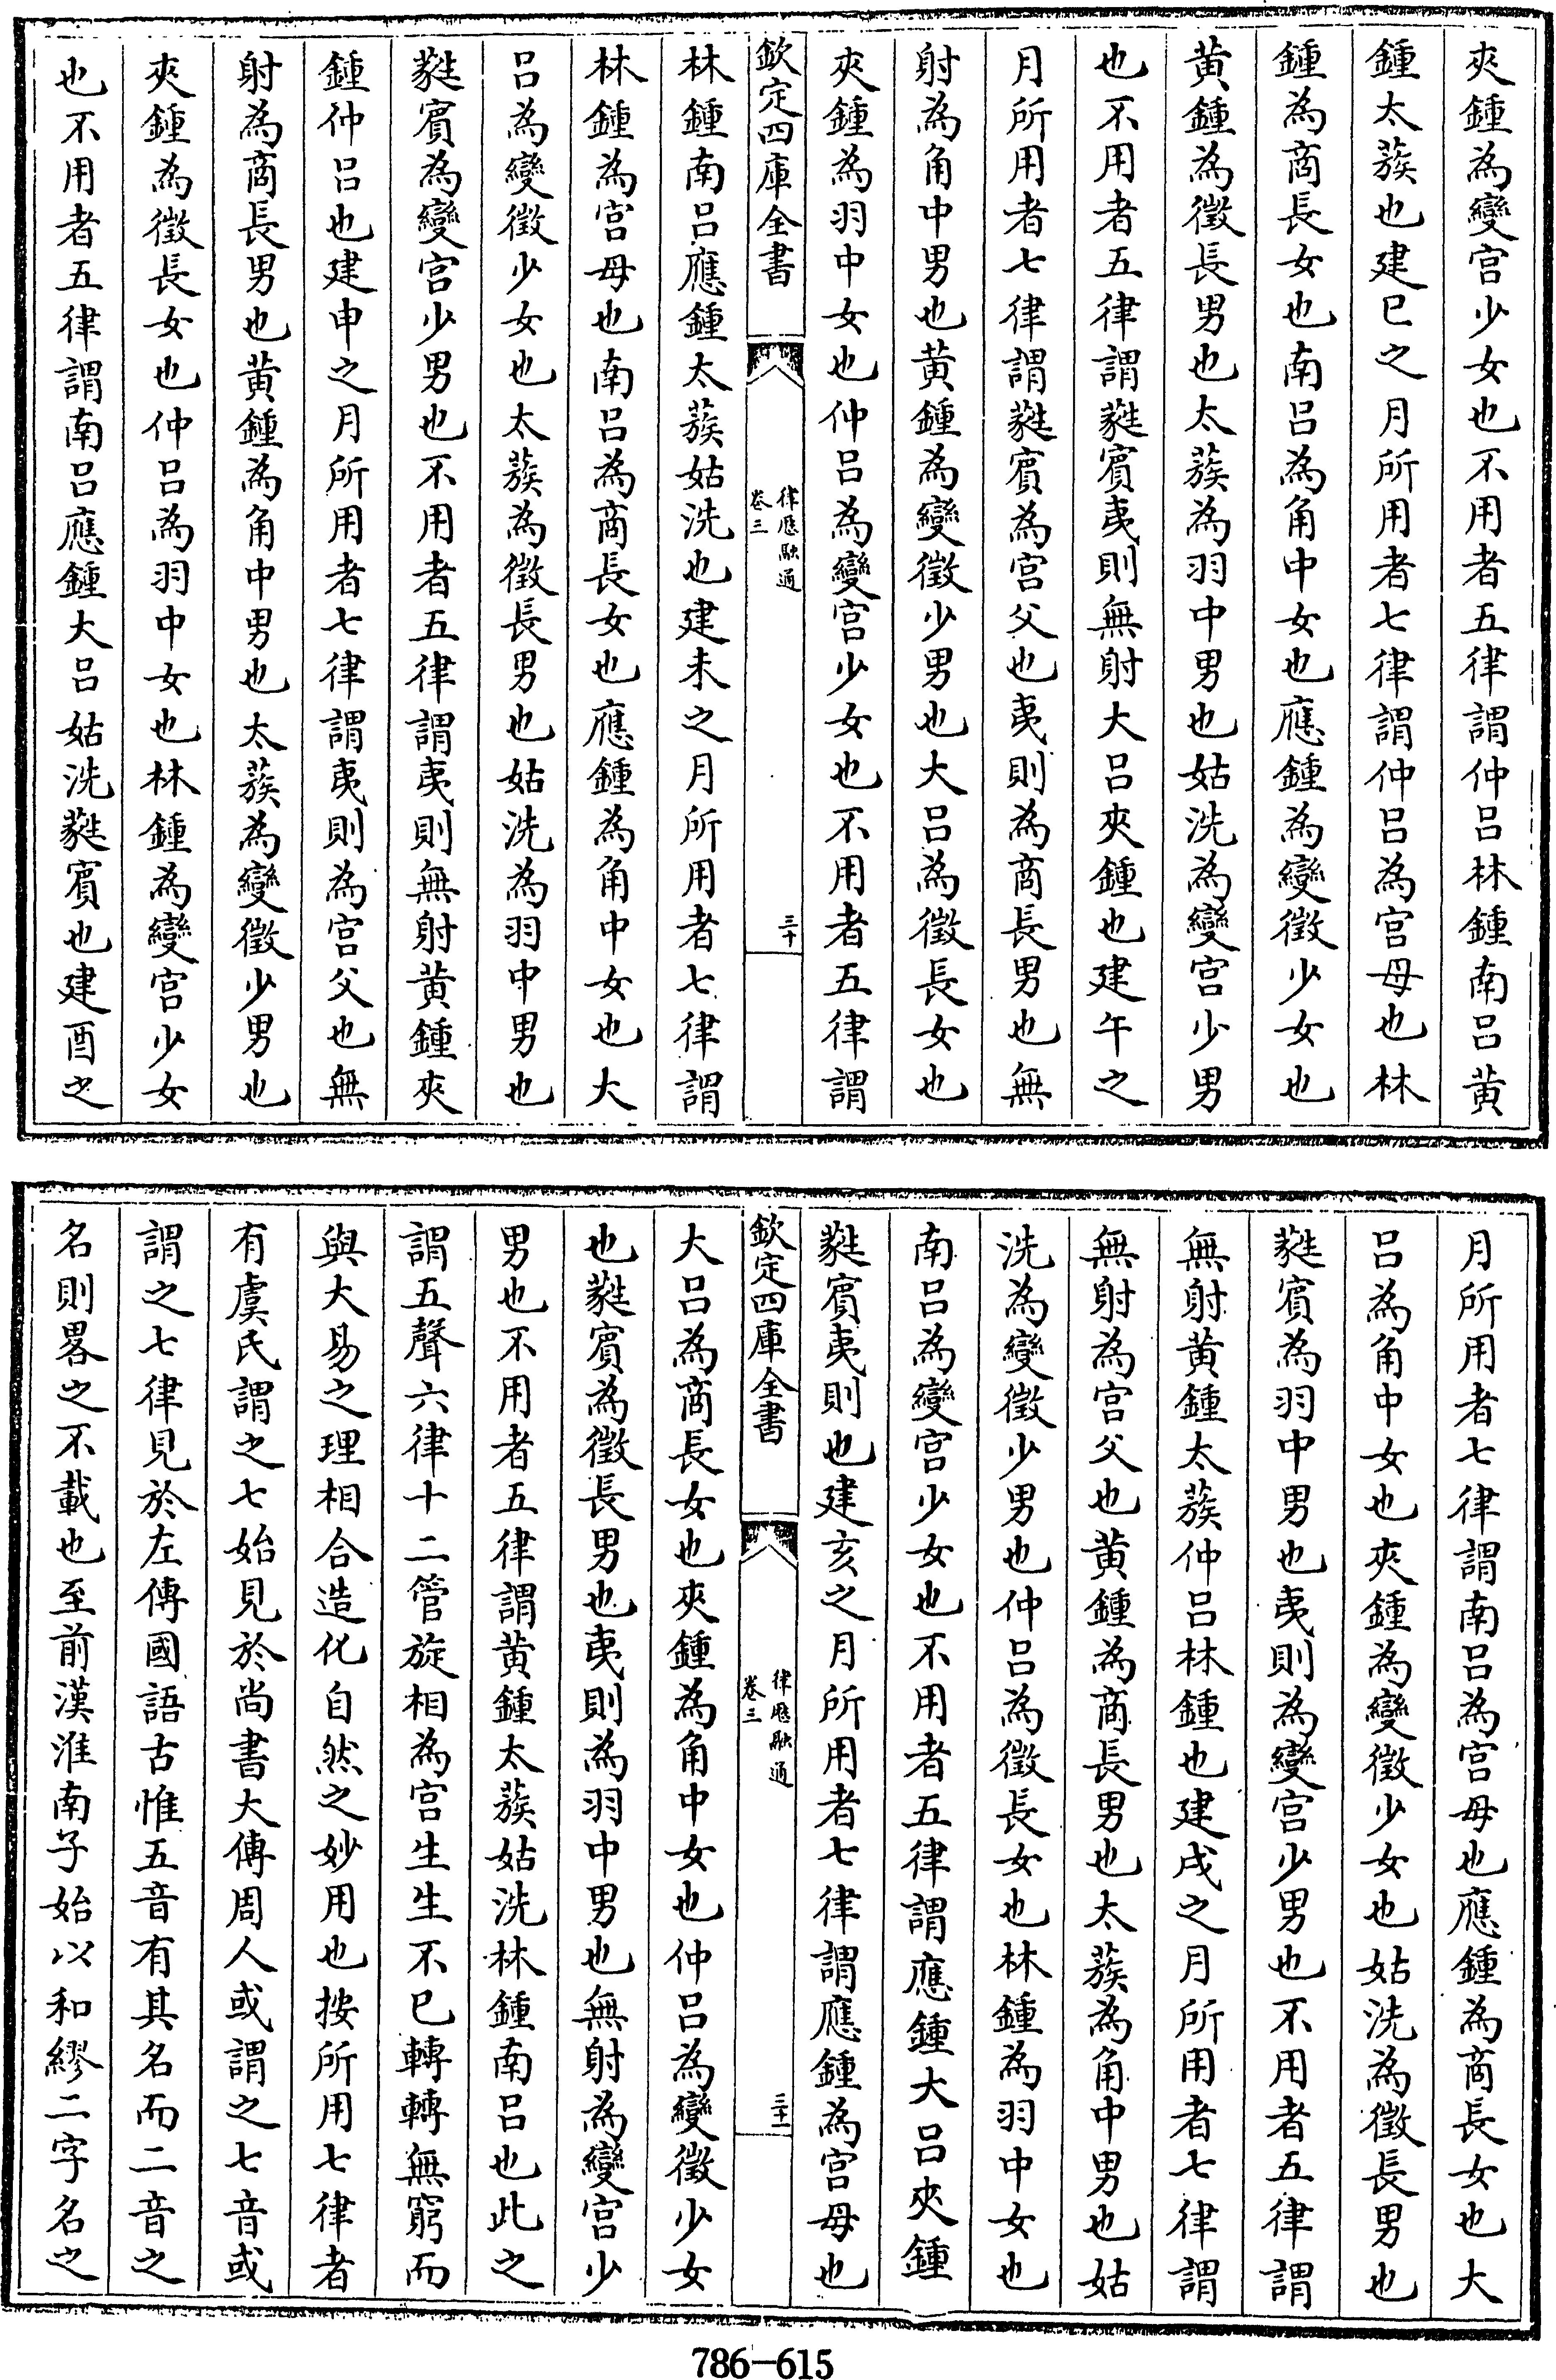 夾鍾為變宫少女也不用者五律謂仲呂林鍾南呂黄
鍾太蔟也建巳之月所用者七律謂仲呂為宫母也林
鍾為商長女也南呂為角中女也應鍾為變徵少女也
黄鍾為徵長男也太蔟為羽中男也姑洗為變宫少男
也不用者五律謂蕤賓夷則無射大呂夾鍾也建午之
月所用者七律謂蕤賓為宫父也夷則為商長男也無
射為角中男也黄鍾為變徵少男也大呂為徵長女也
夾鍾為羽中女也仲呂為變宫少女也不用者五律謂
欽定四庫全書
律厯融通
卷三
三十
林鍾南呂應鍾太蔟姑洗也建未之月所用者七律謂
林鍾為宫母也南呂為商長女也應鍾為角中女也大
呂為變徵少女也太蔟為徵長男也姑洗為羽中男也
蕤賓為變宫少男也不用者五律謂夷則無射黄鍾夾
鍾仲呂也建申之月所用者七律謂夷則為宫父也無
射為商長男也黄鍾為角中男也太蔟為變徵少男也
夾鍾為徵長女也仲呂為羽中女也林鍾為變宫少女
也不用者五律謂南呂應鍾大呂姑洗蕤賓也建酉之
月所用者七律謂南呂為宫母也應鍾為商長女也大
呂為角中女也夾鍾為變徵少女也姑洗為徵長男也
蕤賓為羽中男也夷則為變宫少男也不用者五律謂
無射黄鍾太蔟仲呂林鍾也建戌之月所用者七律謂
無射為宫父也黄鍾為商長男也太蔟為角中男也姑
洗為變徵少男也仲呂為徵長女也林鍾為羽中女也
南呂為變宫少女也不用者五律謂應鍾大呂夾鍾
蕤賓夷則也建亥之月所用者七律謂應鍾為宫母也
欽定四庫全書
律厯融通
卷三
三十一
大呂為商長女也夾鍾為角中女也仲呂為變徵少女
也蕤賓為徵長男也夷則為羽中男也無射為變宫少
男也不用者五律謂黄鍾太蔟姑洗林鍾南呂也此之
謂五聲六律十二管旋相為宫生生不已轉轉無窮而
與大易之理相合造化自然之妙用也按所用七律者
有虞氏謂之七始見於尚書大傳周人或謂之七音或
謂之七律見於左傳國語古惟五音有其名而二音之
名則畧之不載也至前漢淮南子始以和繆二字名之
786-615